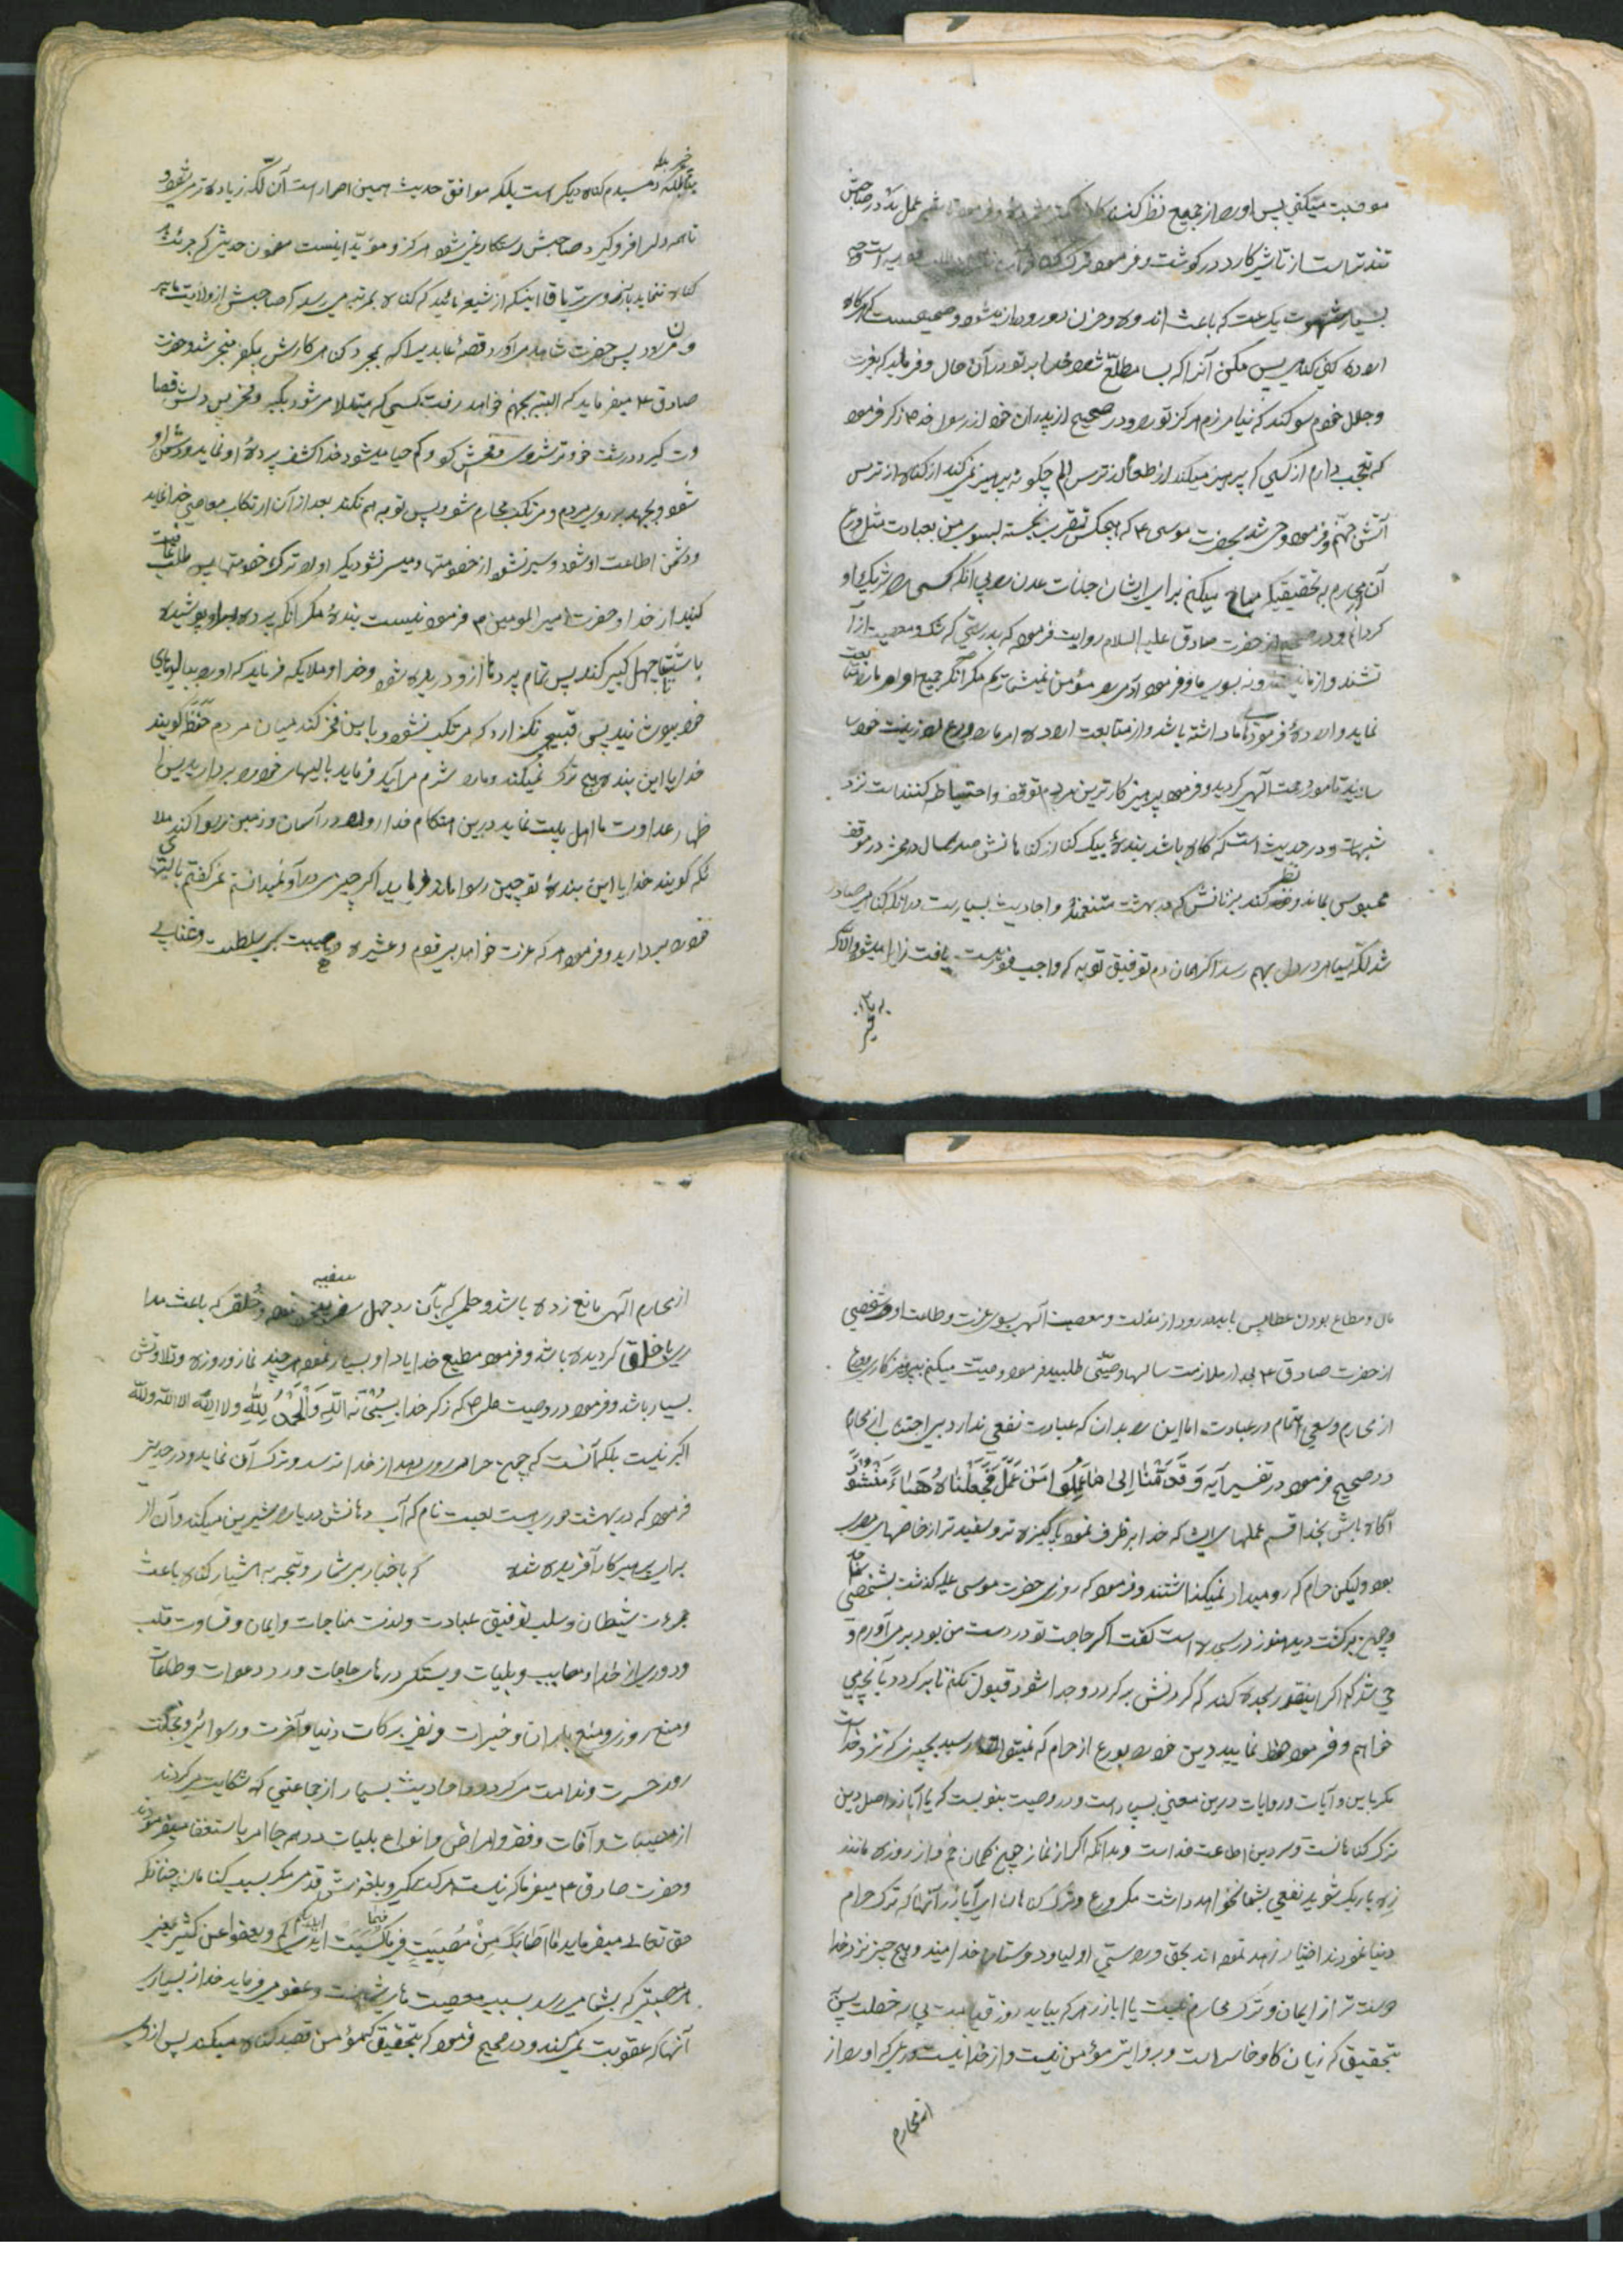 موقبت میکنی پس اورا از جمیع نظر کنند
تندتر است از تاثیر کارد در گوشت و فرموده ترک گناه
بسیار شهوت یکساعت که باعث اندوه و حزن دور و دراز میشود و صحیحست که هرگاه
اراده کنی گناهی پس مکن آنرا که بسا مطلع شود خدا بر تو در آن حال و فرماید که بعزت
و جلال خودم سوگند که نیامرزم هرگز تو را و در صحیح از پدران خود از رسول خدا ص ذکر فرموده
که تعجب دارم از کسی که پرهیز میکند از طعام از ترس الم چگونه پرهیز نمی کند از گناه از ترس
آتش جهنم و فرموده وحی شد بحضرت موسی ع که هیچکس تقرب نجسته بسوی من بعبادت مثل ورع
آن محارم بتحقیقیکه مباح میکنم برای ایشان جنات عدن را بی آنکه کسی را شریک او
گردانم و در صحیح از حضرت صادق علیه السلام روایت فرموده که بدرستی که شک و معصیت از آ
تشند و از ما نیستند و نه بسوی ما و فرموده آدمی را مؤمن نمیشماریم مگر آنکه جمیع اوامر ما را متابعت
نماید و اراده فرمودهای ما داشته باشد و از متابعت اراده امر ما ورع را زینت خود
سازید تا مورد رحمت الهی گردید و فرموده پرهیزکارترین مردم توقف و احتیاط کننده است نزد
شبهات و در حدیث است که گاه باشد بنده بیک گناه از گناهانش صد سال در محشر در موقف
محبوس بماند و نظر کند بزنانش که در بهشت متنعمند و احادیث بسیارست در آنکه گناهی صادر
شد لکه سیاه در دل بهم رسد اگر همان دم توفیق توبه که واجب فوریست یافت زایل میشود و الا که
دمبدم گناه دیگر است بلکه موافق حدیث همین اصرار است آن لکه زیاده تر میشود
تا همه دل را فرو گیرد و صاحبش رستگار نمی شود هرگز و مؤید اینست مضمون حدیثی که جرئت
گناه ننماید
و در پس حضرت شاهد می آورد قصه عابدی را که بمجرد گناه کارش بکفر منجر شد و حضرت
صادق ع میفرماید که البته بجهنم خواهد رفت کسی که مبتلا می شود بکبر و فخر پس دلش قصا
وت گیرد درشت خو و ترشروی و فحش گو و کم حیا میشود خدا کشف پرده او نماید و دشمن او
شود و بجهد بر روی مردم و مرتکب محارم شود پس توبه هم نکند بعد از آن ارتکاب معاصی خدا نماید
و دشمن اطاعت او شود و سیر نشود از خصومتها و میسر نشود دیگر او را ترک خصومتها پس طلب عافیت
کنید از خدا و حضرت امیر المومنین ع فرموده نیست بنده مگر آنکه پرده بر او پوشیده
باشد تا چهل کبیر کند پس تمام پرده ها از او دریده شود و خدا و ملایکه فرماید که او را ببالهای
خود بپوشانید پس قبیحی نگذارد که مرتکب نشود و باین فخر کند میان مردم حفظه گویند
خدایا این بنده هیچ ترک نمیکند و ما را شرم می آید فرماید بالهای خود را بردارید پس
ظهار عداوت ما اهل بیت نماید درین هنگام خدا او را در آسمان و زمین رسوا کند ملا
ئکه گویند خدایا این بنده تو چنین رسوا ماند فرماید اگر چیزی در او میدانستم نمی گفتم بالها
خود را بردارید و فرموده هر که عزت خواهد بی قوم و عشیره و هیبت بی سلطنت و غنا بی
مال و مطاع بودن عطا پس باید بدر رود از مذلت و معصیت الهی بسوی عزت و طاعت او و شخصی
از حضرت صادق ع بعد از ملازمت سالها وصیتی طلبید فرمود وصیت میکنم بپرهیزکاری و ورع
از محارم و سعی اهتمام در عبادت اما این را بدان که عبادت نفعی ندارد بی اجتناب از محارم
در صحیح فرموده در تفسیر آیه وَقَدِمْنَا إِلَى مَا عَمِلُوا مِنْ عَمَلٍ فَجَعَلْنَاهُ هَبَاءً مَنْثُورًا
آگاه باش بخدا قسم عملهای ایشان که خدا بر طرف نموده پاکیزه تر و سفیدتر از خاصهای مصر
بود ولیکن حرام که رو میداد نمیگذاشتند و فرموده که روزی حضرت موسی علیه گذشت بشخصی
و چون برگشت دید هنوز در سجده است گفت اگر حاجت تو در دست من بود بر می آوردم و
حی شد که اگر اینقدر سجده کند که گردنش جدا شود قبول نکنم تا برگردد بآنچه من
خواهم و فرموده حفظ نمایید دین خود را بورع از حرام که نمیتوان رسید بچیزی که نزد خداست
مگر باین و آیات و روایات درین معنی بسیار است و در وصیت نبویست که یا اباذر اصل دین
ترک گناهانست و سر دین اطاعت خداست و بدانکه اگر از نماز چون کمان خم و از روزه مانند
زه باریک شوید نفعی بشما نخواهد داشت مگر ورع و ترک گناهان ای اباذر آنها که ترک حرام
دنیا نمودند اختیار زهد نموده اند بحق و راستی اولیا و دوستان خدا میند و هیچ چیز نزد خدا
دوست تر از ایمان و ترک محارم نیست یا اباذر هر که بیاید روز قیامت بی سه خصلت پس
بتحقیق که زیان کار و خاسر است و بروایتی مؤمن نیست و از خدا نیست ورعی که او را از
از محارم
از محارم الهی مانع زده باشد و حلمی که بآن رد جهل سفیه نموده و خلقی که باعث مدا
رای با خلق گردیده باشد و فرموده مطیع خدا یاد او بسیار نموده هر چند نماز و روزه و تلاوتش
بسیار باشد و فرموده در وصیت علی ص که ذکر خدا سبحان الله والحمد لله ولا اله الا الله والله
اکبر نیست بلکه آنست که چون حرامی رو دهد از خدا ترسد و ترک آن نماید و در حدیثی
فرموده که در بهشت حوریست لعبت نام که آب دهانش دریا را شیرین میکند و آن از
برای پرهیزکار آفریده شده که باخبار بی شمار و تجربه بسیار گناه باعث
جرءت شیطان و سلب توفیق عبادت و لذت مناجات و ایمان و قساوت قلب
و دوری از خدا و مصایب و بلیات و بستگی درهای حاجات و رد دعوات و طاعات
و منع روزی و منع باران و خیرات و تغیر برکات دنیا و آخرت و رسوائی و خجلت
روز حسرت و ندامت میگردد و احادیث بسیار از جماعتی که شکایت میکردند
از مصیبات و آفات و فقر و امراض و انواع بلیات در همه جا امر باستغفار میفرمودند
و حضرت صادق ع میفرماید که نیست هر گرفتگیری و لغزش قدمی مگر بسبب گناهان چنانکه
حق تعالی میفرماید مَا أَصَابَكُمْ مِنْ مُصِيبَةٍ فَبِمَا كَسَبَتْ أَيْدِيكُمْ ويعفوا عن كثير یعنی
هر مصیبتی که بشما میرسد بسبب معصیت های شماست و عفو میفرماید خدا از بسیاری
آنها که عقوبت نمیکند و در صحیح فرموده که بتحقیق که مؤمن قصد گناه میکند پس از روی